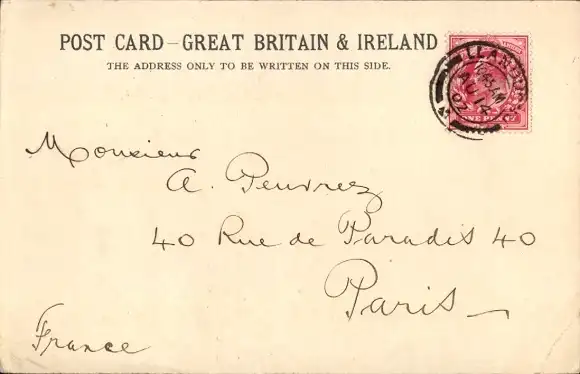 POST CARD – GREAT BRITAIN & IRELAND
THE ADDRESS ONLY TO BE WRITTEN ON THIS SIDE.
AU 14
02
ONE PENNY
Monsieur
A. Peuvrez
40 Rue de Paradis 40
Paris
France